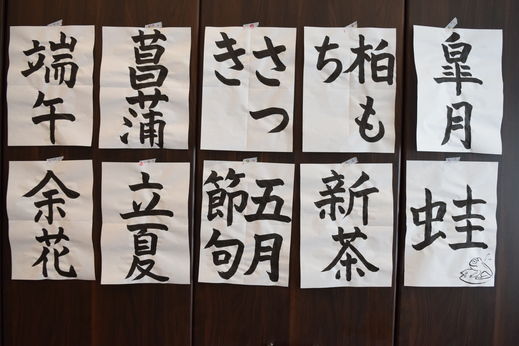 皐月
柏も
ち
さつ
き
菖蒲
端午
蛙
新茶
五月
節句
立夏
余花